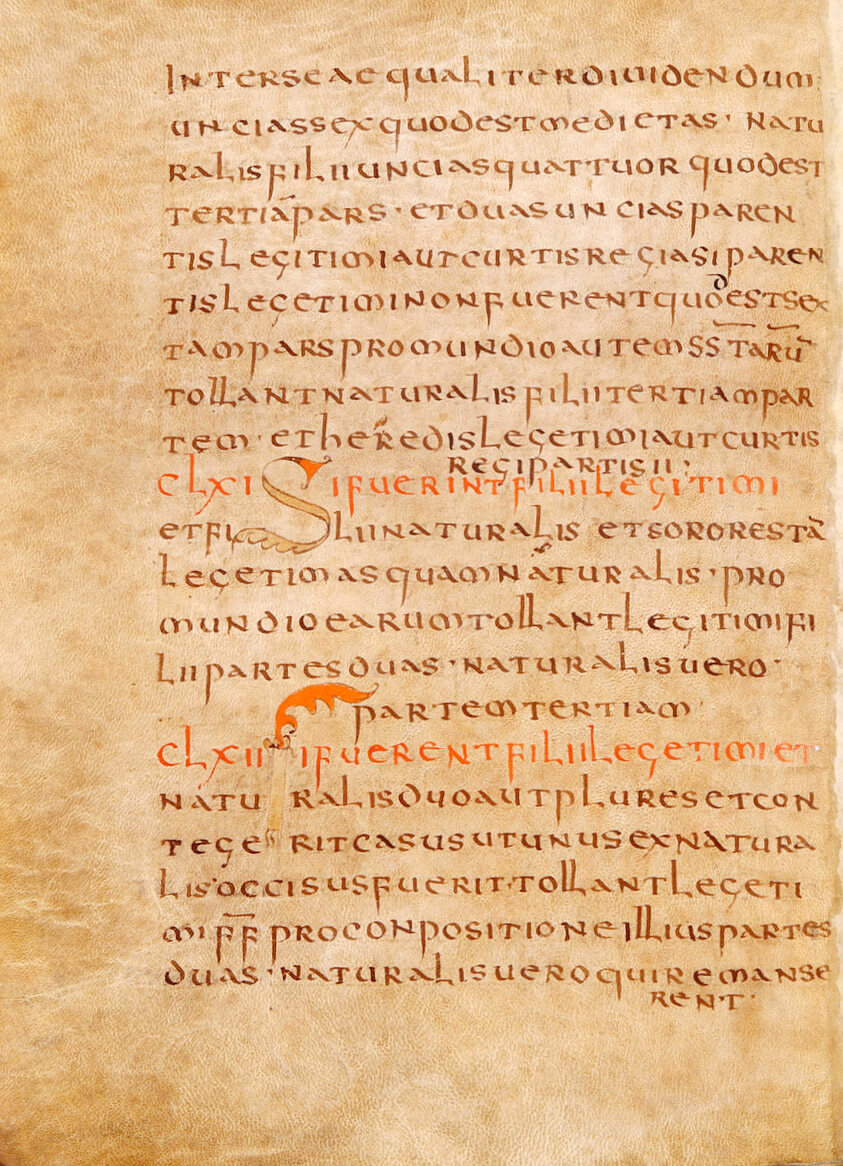 INTERSEAEQUALITERDIUIDENDUM
UNCIASSEXQUODESTMEDIETAS· NATU
RALISFILIIUNCIASQUATTUOR QUODEST
TERTIĀPARS· ETDUASUNCIASPAREN
TISLEGITIMIAUTCURTISREGIASIPAREN
TISLEGETIMINONFUERENTQUODESTSEX
TAMPARSPROMUNDIOAUTEMSSTARŪ
TOLLANTNATURALISFILIITERTIAMPAR
TEM· ETHEREDISLEGETIMIAUTCURTIS
REGIPARTISII;
CLXI SIFUERINTFILIILEGITIMI
ETFILIINATURALIS ETSORORESTĀ
LEGETIMASQUAMNATURALIS·PRO
MUNDIOEARUMTOLLANTLEGITIMIFI
LIIPARTESDUAS·NATURALISUERO·
PARTEMTERTIAM·
CLXII SIFUERENTFILIILEGETIMIET
NATURALISDUOAUTPLURESETCON
TEGERITCASUSUTUNUSEXNATURA
LISOCCISUSFUERIT·TOLLANTLEGETI
MIF̄F̄PROCONPOSITIONEILLIUSPARTES
DUAS·NATURALISUEROQUIREMANSE
RENT·